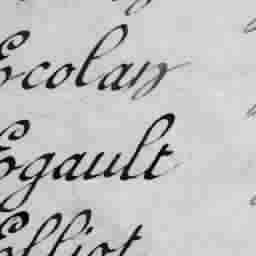 Ecolan
Egault
Elliot